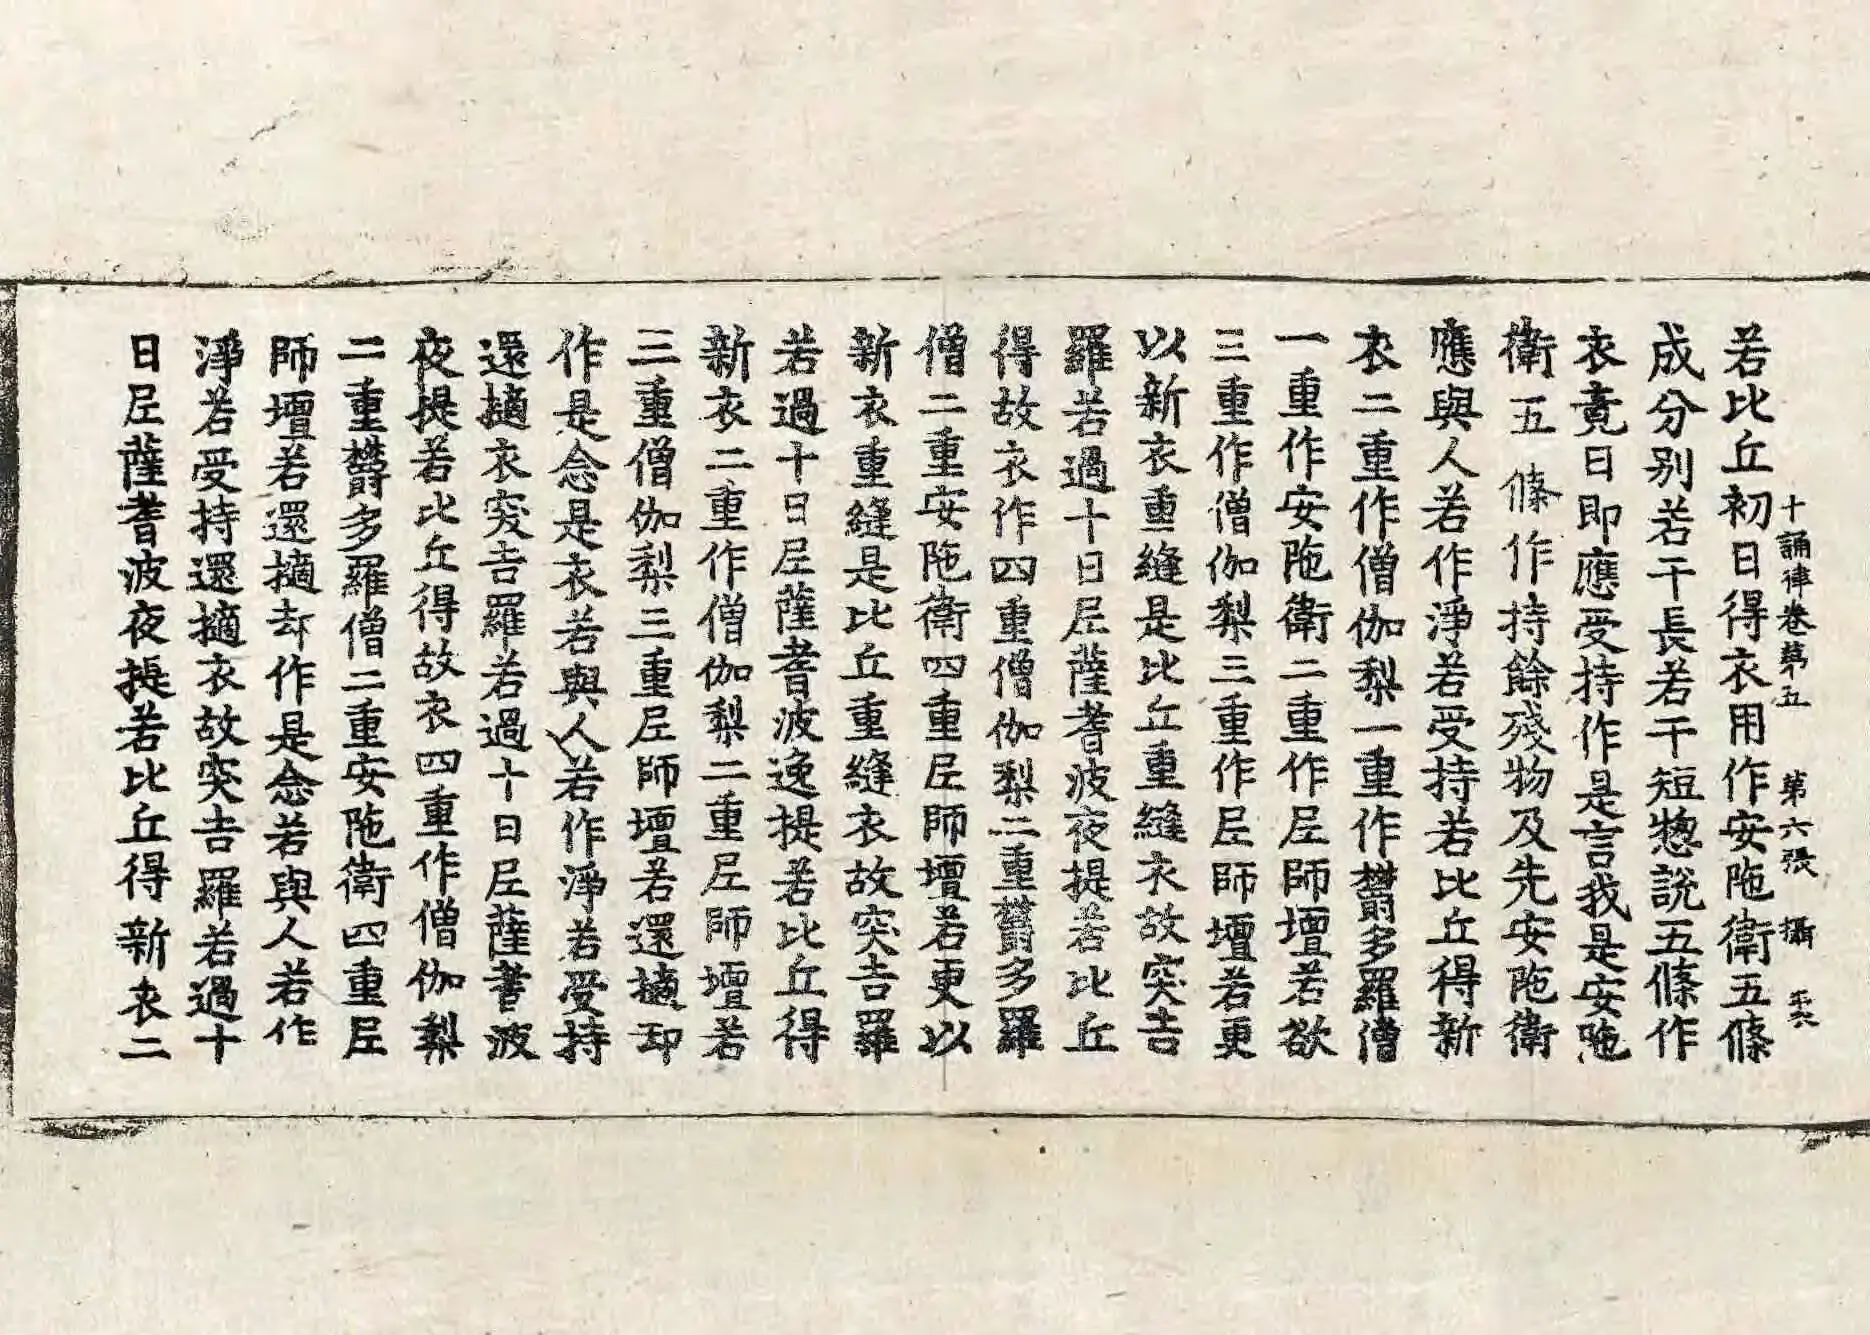 十誦律卷第五 第六張 攝
若比丘初日得衣用作安陁衛五條
成分別若干長若干短惣說五條作
衣竟日即應受持作是言我是安陁
衛五條作持餘殘物及先安陁衛
應與人若作淨若受持若比丘得新
衣二重作僧伽梨一重作欝多羅僧
一重作安陁衛二重作尼師壇若欲
三重作僧伽梨三重作尼師壇若更
以新衣重縫是比丘重縫衣故突吉
羅若過十日尼薩耆波夜提若比丘
得故衣作四重僧伽梨二重欝多羅
僧二重安陁衛四重尼師壇若更以
新衣重縫是比丘重縫衣故突吉羅
若過十日尼薩耆波逸提若比丘得
新衣二重作僧伽梨二重尼師壇若
三重僧伽梨三重尼師壇若還擿却
作是念是衣若與人若作淨若受持
還擿衣突吉羅若過十日尼薩耆波
夜提若比丘得故衣四重作僧伽梨
二重欝多羅僧二重安陁衛四重尼
師壇若還擿却作是念若與人若作
淨若受持還擿衣故突吉羅若過十
日尼薩耆波夜提若比丘得新衣二